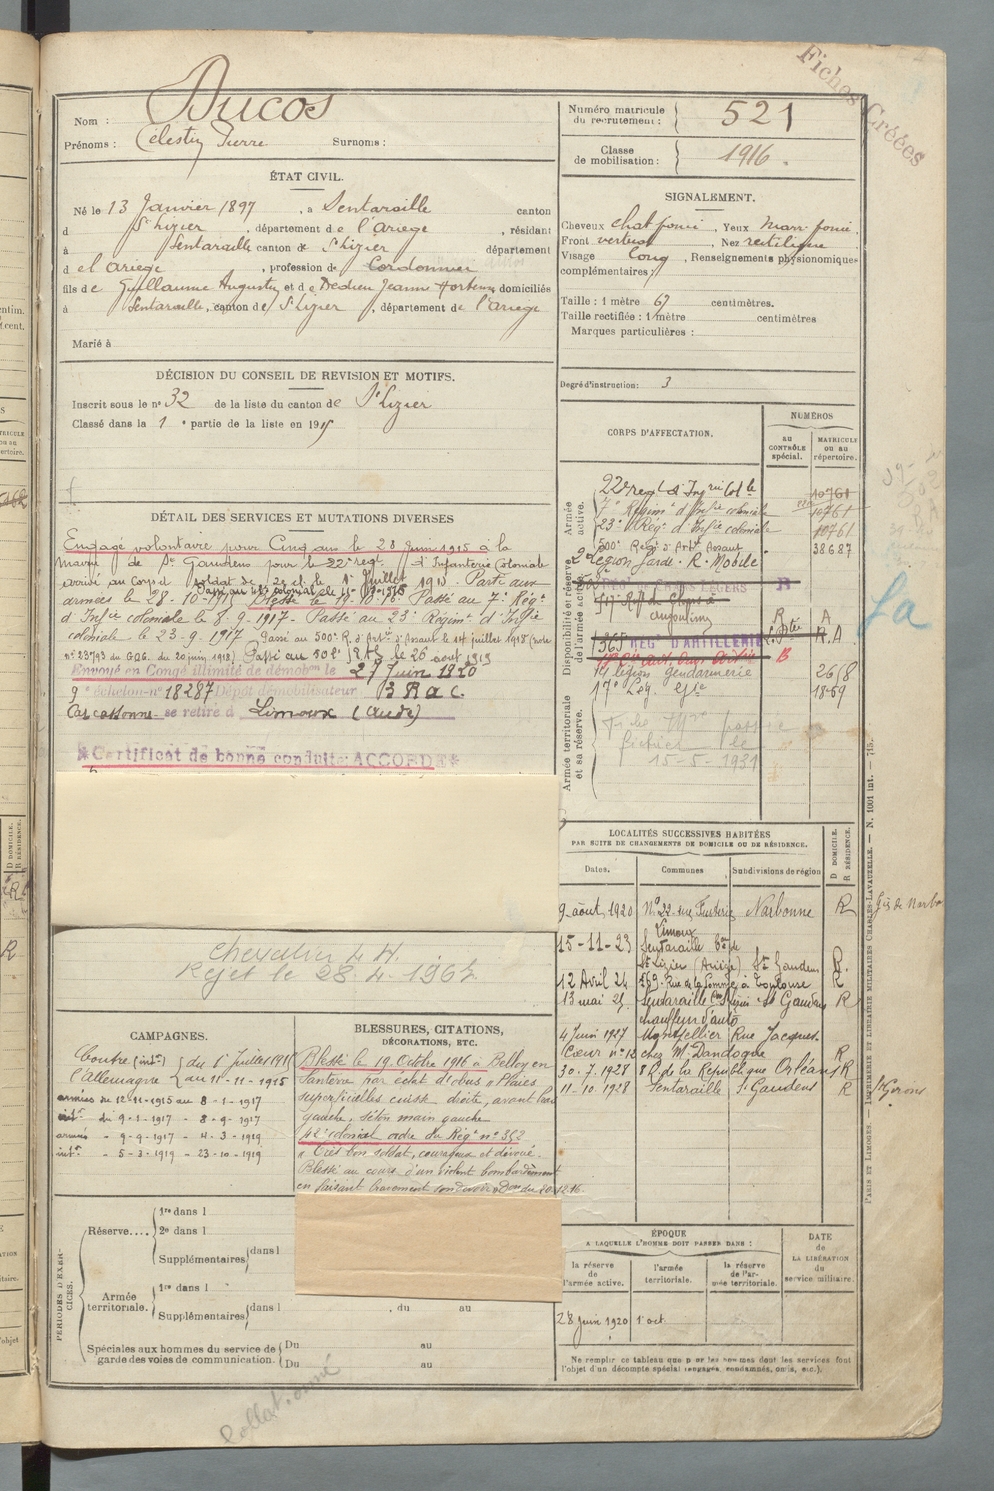 Fiches Créées
Nom : Ducos
Prénoms : Célestin Pierre Surnoms :
Numéro matricule du recrutement : 521
Classe de mobilisation : 1916.
ÉTAT CIVIL.
Né le 13 Janvier 1897, à Sentaraille canton
d St Lizier, département de l'Ariège, résidant
à Sentaraille canton de St Lizier département
d el Ariège, profession de Cordonnier
fils de Guillaume Augustin et de Dedieu Jeanne Hortense domiciliés
à Sentaraille, canton de St Lizier, département de l'Ariège
Marié à
SIGNALEMENT.
Cheveux chat foncé, Yeux Marr. foncé.
Front vertical, Nez rectiligne
Visage long, Renseignements physionomiques
complémentaires :
Taille : 1 mètre 67 centimètres.
Taille rectifiée : 1 mètre centimètres
Marques particulières :
Degré d'instruction : 3
DÉCISION DU CONSEIL DE REVISION ET MOTIFS.
Inscrit sous le n° 32 de la liste du canton de St Lizier
Classé dans la 1e partie de la liste en 1915
DÉTAIL DES SERVICES ET MUTATIONS DIVERSES
Engagé volontaire pour Cinq ans le 28 Juin 1915 à la
mairie de St Gaudens pour le 22e régt d'Infanterie Coloniale
arrivé au corps et soldat de 2e cl. le 1er Juillet 1915. Parti aux
armées le 28-10-1915 Blessé le 19-10-16 Passé au 7e Régt
d'Infie coloniale le 8-9-1917 - Passé au 23e Régiment d'Infie
coloniale le 23-9-1917 - Passé au 500e R. d'Artie d'Assaut le 14 juillet 1918 (note
n° 23793 du GQG. du 20 juin 1918) Passé au 501e le 26 août 1919
Envoyé en Congé illimité de démobon le 27 Juin 1920
9e échelon n° 18287 Dépôt démobilisateur 3 R a c.
Carcassonne se retire à Limoux (Aude)
Certificat de bonne conduite ACCORDÉ
Chevalier L H.
Rejet le 28.4.1964
CORPS D'AFFECTATION.
NUMÉROS
au CONTRÔLE spécial.
MATRICULE ou au répertoire.
Armée active.
22e régt d'Infrie Colle 10761
7e Régimt d'Infie coloniale 10761
23e Régt d'Infie coloniale 10761
500e Régt d'Artie Assaut 38687
Disponibilité et réserve de l'armée active.
Légion Garde R. Mobile
CHARS LÉGERS R
R A
RÉG. D'ARTILLERIE R.A
B
légion gendarmerie 26/8
17e Lég. Gie 1859
Armée territoriale et sa réserve.
15-5-1931
LOCALITÉS SUCCESSIVES HABITÉES
PAR SUITE DE CHANGEMENTS DE DOMICILE OU DE RÉSIDENCE.
Dates. Communes Subdivisions de région D DOMICILE. R RÉSIDENCE.
9 août 1920 N° 22 rue Fusterie Narbonne R
Limoux
15-11-23 Sentaraille
St Lizier (Ariège) St Gaudens R.
12 Avril 24 Rue de la Pomme à Toulouse R
13 mai 25 Sentaraille St Gaudens R
chauffeur d'auto
4 Juin 1927 Montpellier Rue Jacques
Cœur n° 12 chez Mr Dandogue R
30.7.1928 8 R. de la République Orléans R
11.10.1928 Sentaraille St Gaudens R
St Girons
CAMPAGNES.
Contre (intr) du 1er Juillet 1915
l'Allemagne au 11-11-1915
armées du 12-11-1915 au 8-1-1917
intr du 9-1-1917 - 8-9-1917
armées - 9-9-1917 - 4-3-1919
intr - 5-3-1919 - 23-10-1919
BLESSURES, CITATIONS,
DÉCORATIONS, ETC.
Blessé le 19 Octobre 1916 à Belloy en
Santerre par éclat d'obus « Plaies
superficielles cuisse droite, avant bras
gauche, séton main gauche
42e colonial ordre du Régt n° 352
« Très bon soldat, courageux et dévoué.
Blessé au cours d'un violent bombardement
en faisant bravement son devoir » Don du 20-12-16.
PÉRIODES D'EXERCICES.
Réserve.... 1re dans l
2e dans l
Supplémentaires dans l
Armée territoriale. 1re dans l
Supplémentaires dans l , du au
Spéciales aux hommes du service de garde des voies de communication. Du au
Du au
ÉPOQUE
A LAQUELLE L'HOMME DOIT PASSER DANS :
la réserve de l'armée active. l'armée territoriale. la réserve de l'armée territoriale.
DATE de LA LIBÉRATION du service militaire.
28 Juin 1920 1er oct
Ne remplir ce tableau que pour les hommes dont les services font
l'objet d'un décompte spécial (engagés, condamnés, omis, etc.).
PARIS ET LIMOGES. — IMPRIMERIE ET LIBRAIRIE MILITAIRES CHARLES-LAVAUZELLE. — N. 1001 int. — 715.
Collationné